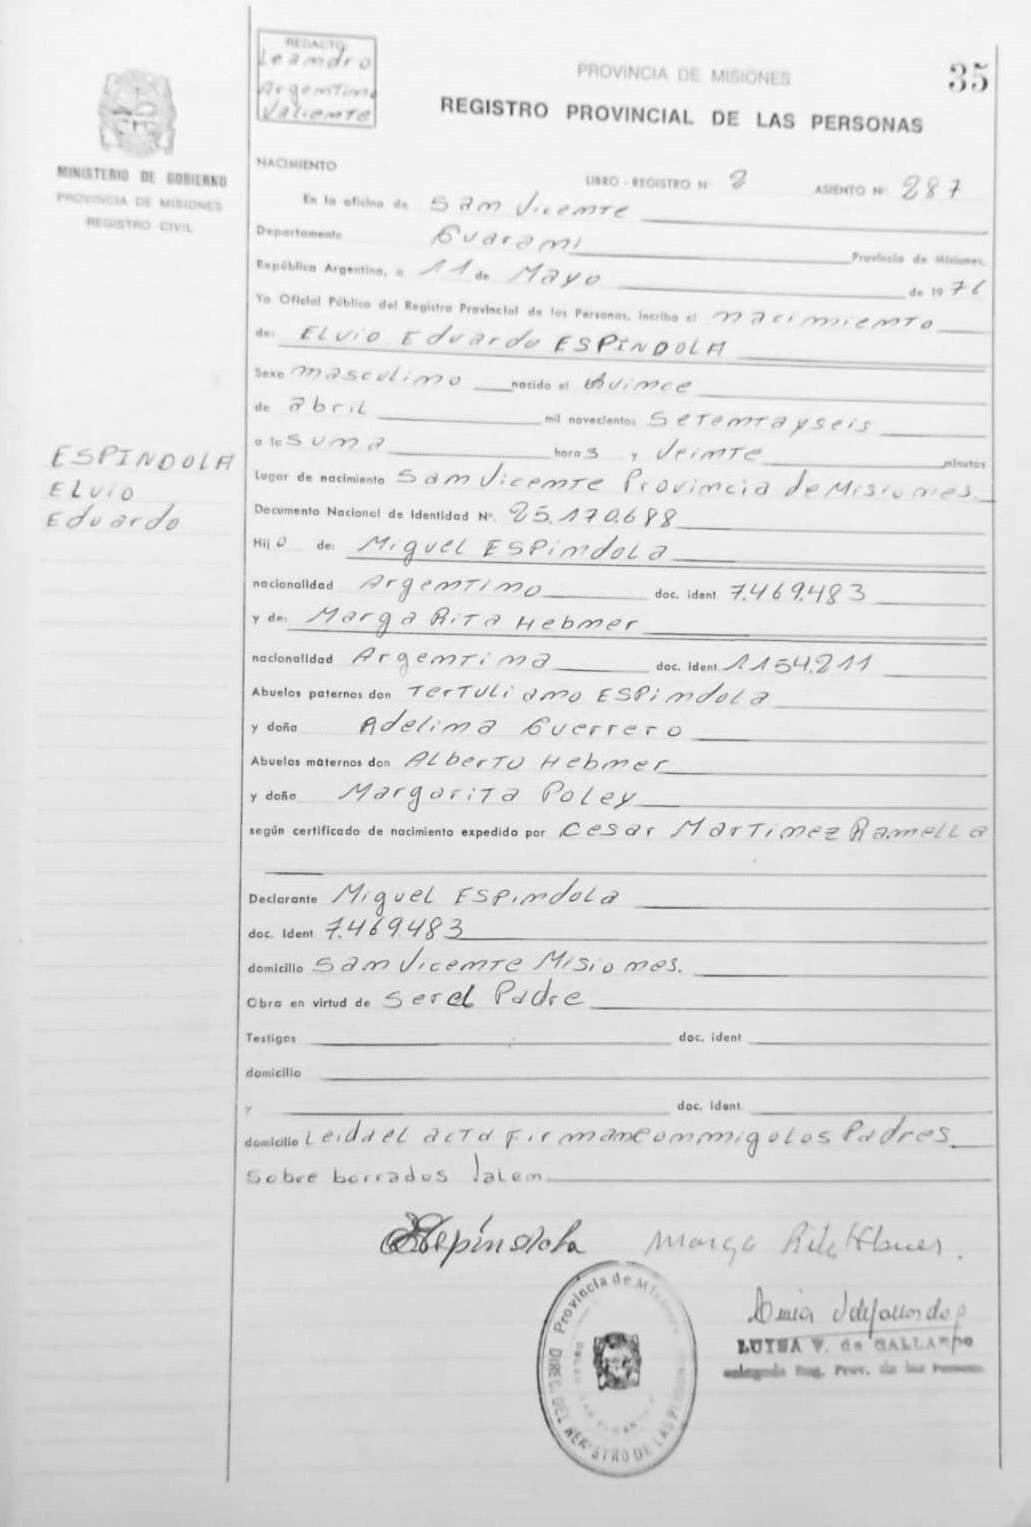 REDACTO
Leandro
Argentino
Valiente
PROVINCIA DE MISIONES
35
REGISTRO PROVINCIAL DE LAS PERSONAS
MINISTERIO DE GOBIERNO
PROVINCIA DE MISIONES
REGISTRO CIVIL
NACIMIENTO
LIBRO - REGISTRO Nº 2 ASIENTO Nº 287
En la oficina de San Vicente
Departamento Guarani Provincia de Misiones,
República Argentina, a 11 de Mayo de 1976
Yo Oficial Público del Registro Provincial de las Personas, inscribo el nacimiento
de: ELVIO Eduardo ESPINDOLA
Sexo masculino nacido el Quince
de abril mil novecientos Setentayseis
a la Suna hora s y Veinte minutos
ESPINDOLA
ELVIO
Eduardo
Lugar de nacimiento San Vicente Provincia de Misiones.
Documento Nacional de Identidad Nº. 25.170.688
Hijo de: Miguel ESPINDOLA
nacionalidad Argentino doc. ident 7.469.483
y de: Marga Rita Hebner
nacionalidad Argentina doc. ident 1.154.211
Abuelos paternos don Tertuliano ESPINDOLA
y doña Adelina Guerrero
Abuelos maternos don Alberto Hebner
y doña Margarita Poley
según certificado de nacimiento expedido por Cesar Martinez Ramella
Declarante Miguel ESPINDOLA
doc. Ident 7.469.483
domicilio San Vicente Misiones.
Obra en virtud de Ser el Padre
Testigos doc. ident
domicilio
y doc. ident.
domicilio Leida el acta firman conmigo los Padres
Sobre borrados Valen.
Espíndola Marga Rita Hebner.
LUISA V. de GALLARDO
Delegada Reg. Prov. de las Personas
Provincia de Misiones
DIREC. DEL REGISTRO DE LAS PERSONAS